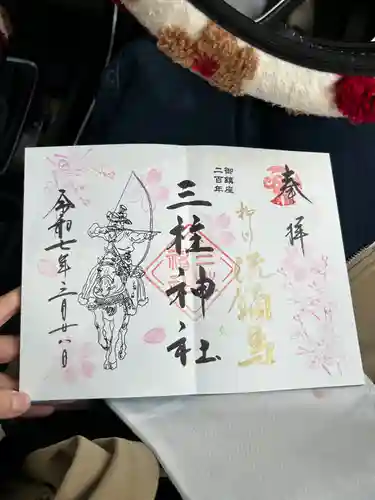 奉拝
柳川流鏑馬
御鎮座
二百年
三柱神社
令和七年三月廿八日